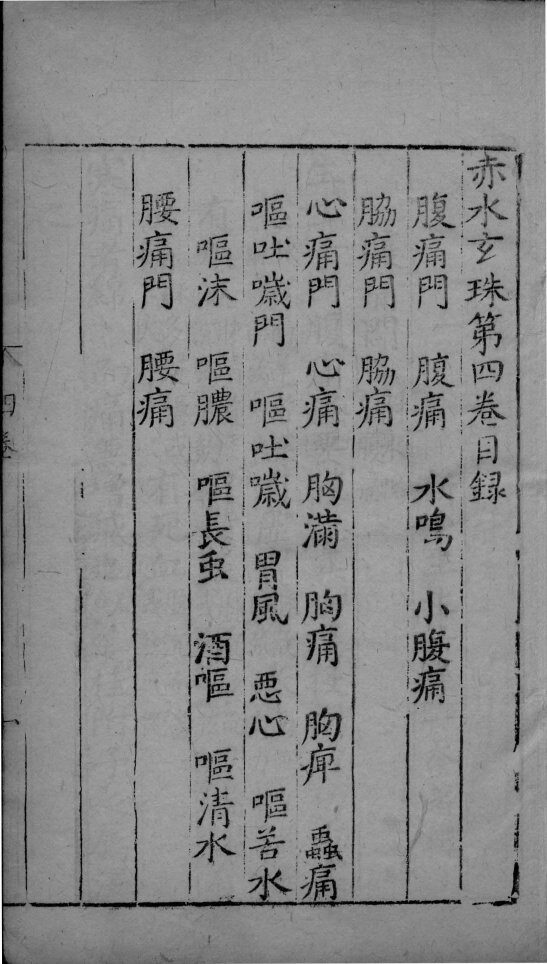 赤水玄珠第四卷目録
腹痛門 腹痛 水鳴 小腹痛
脇痛門 脇痛
心痛門 心痛 胸滿 胸痛 胸痺 蟲痛
嘔吐噦門 嘔吐噦 胃風 悪心 嘔苦水
嘔沫 嘔膿 嘔長虫 酒嘔 嘔清水
腰痛門 腰痛
四卷
一